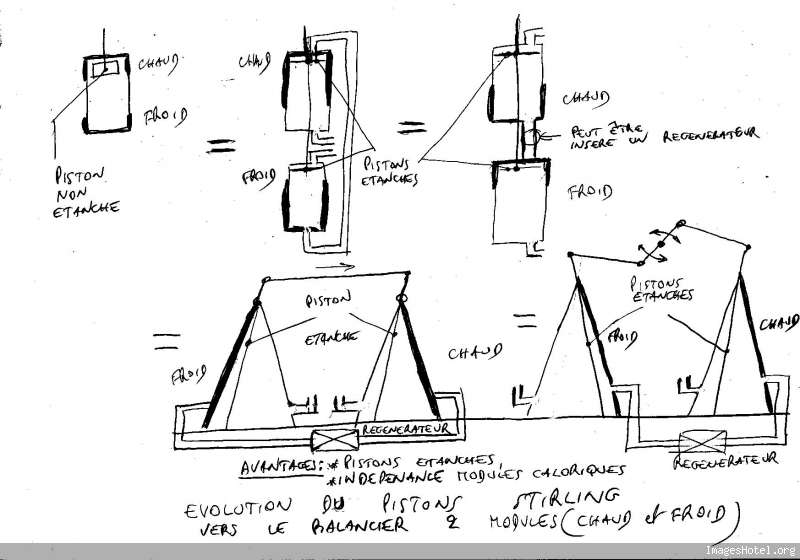 CHAUD
FROID
PISTON
NON
ETANCHE
=
CHAUD
FROID
PISTONS
ETANCHES
=
CHAUD
PEUT ÊTRE
INSERE UN REGENERATEUR
FROID
=
PISTON
ETANCHE
FROID
CHAUD
REGENERATEUR
=
PISTONS
ETANCHES
FROID
CHAUD
REGENERATEUR
AVANTAGES: * PISTONS ETANCHES,
* INDEPENANCE MODULES CALORIQUES
EVOLUTION DU PISTONS STIRLING
VERS LE BALANCIER 2 MODULES (CHAUD et FROID)
ImagesHotel.org